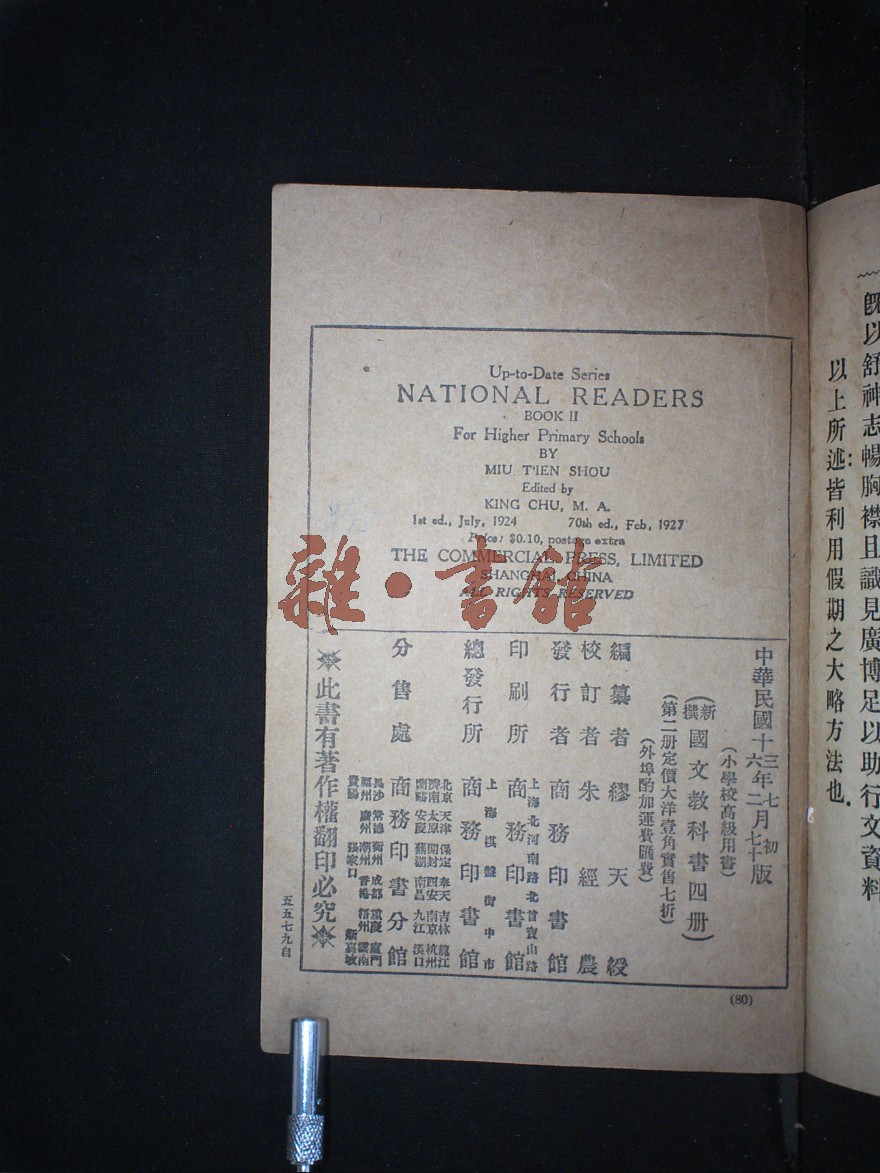 Up-to-Date Series
NATIONAL READERS
BOOK II
For Higher Primary Schools
BY
MIU T'IEN SHOU
Edited by
KING CHU, M. A.
1st ed., July, 1924 70th ed., Feb, 1927
Price: $0.10, postage extra
THE COMMERCIAL PRESS, LIMITED
SHANGHAI, CHINA
ALL RIGHTS RESERVED
雜·書館
中華民國十三年七月初版
六年二月七十版
(小學校高級用書)
(新撰國文教科書四册)
(第二册定價大洋壹角實售七折)
(外埠酌加運費匯費)
編纂者 繆天綬
校訂者 朱經農
發行者 商務印書館
上海北河南路北首寶山路
印刷所 商務印書館
上海棋盤街中市
總發行所 商務印書館
北京 天津 保定 奉天 吉林 龍江
濟南 太原 開封 西安 南京 杭州
安慶 蕪湖 南昌 九江 漢口
分售處 商務印書分館
長沙 常德 衡州 成都 重慶 廈門
福州 廣州 潮州 香港 梧州 雲南
貴陽 張家口 新嘉坡
此書有著作權翻印必究
五五七九自
(80)
旣以舒神志暢胸襟且識見廣博足以助行文資料
以上所述皆利用假期之大略方法也